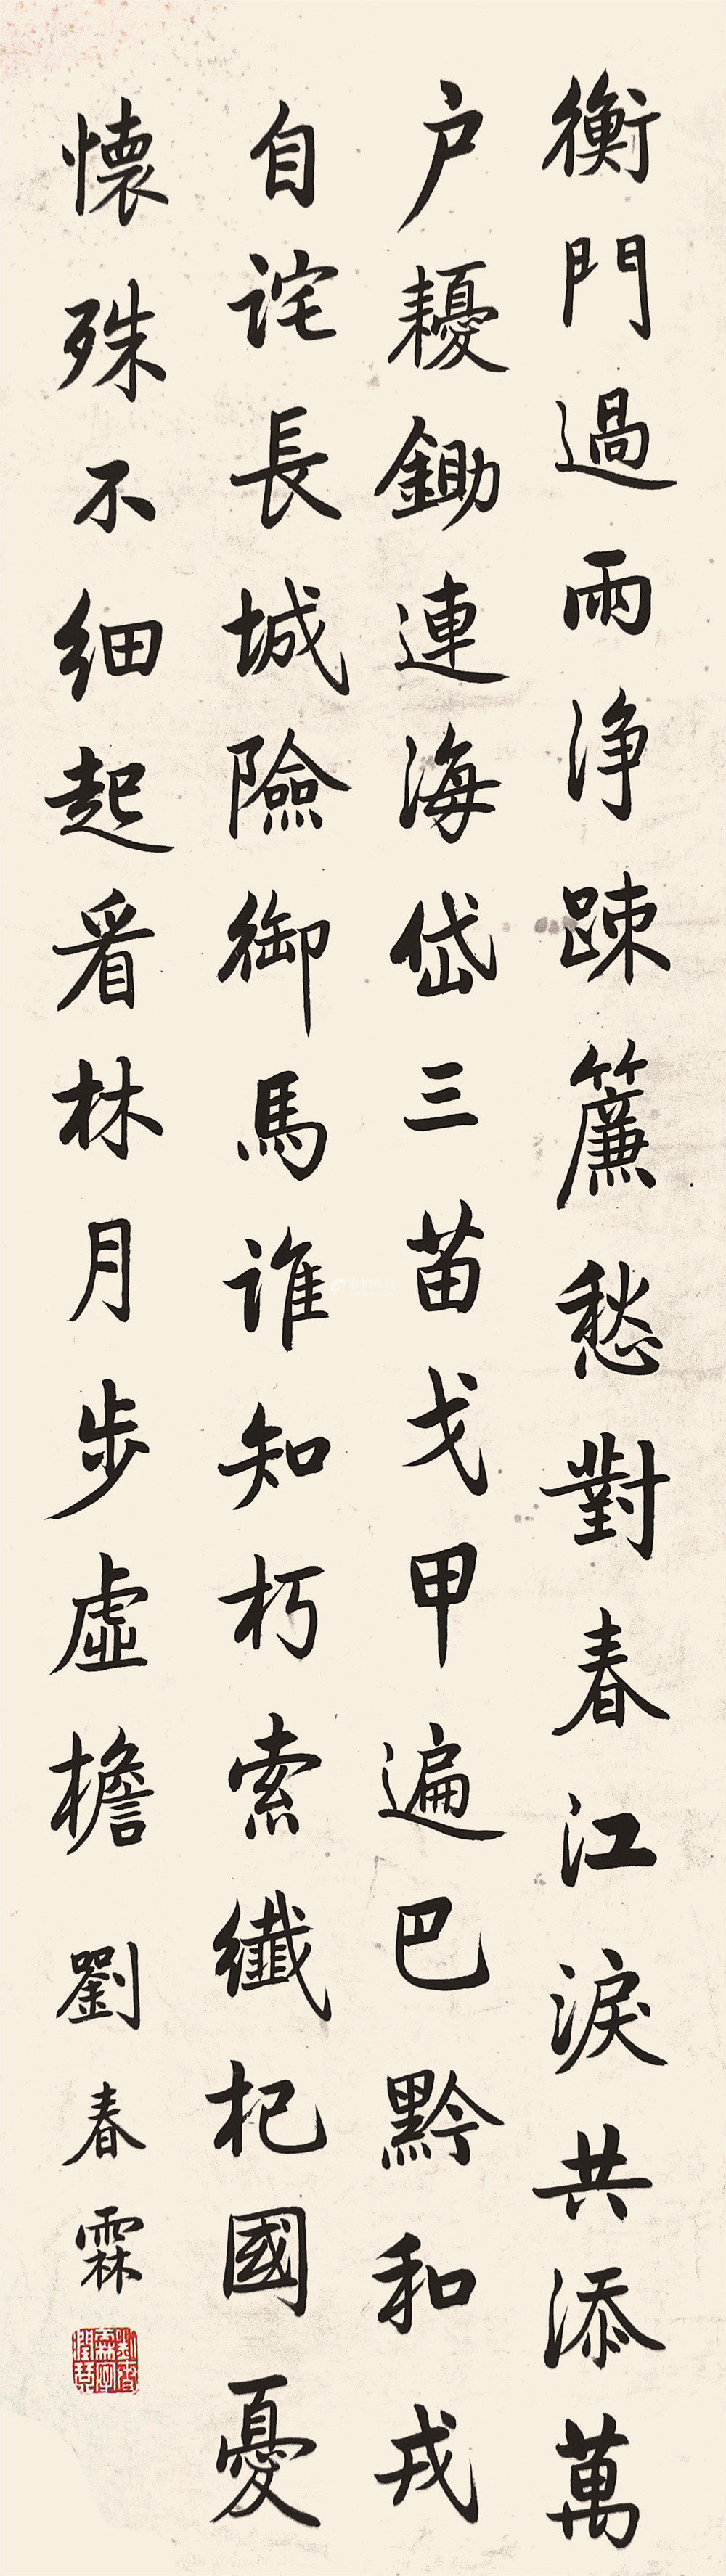 衡門過雨净踈簾愁對春江淚共添萬
户耰鋤連海岱三苗戈甲遍巴黔和戎
自詫長城險御馬誰知朽索纖杞國憂
懷殊不細起看林月步虛檐
劉春霖